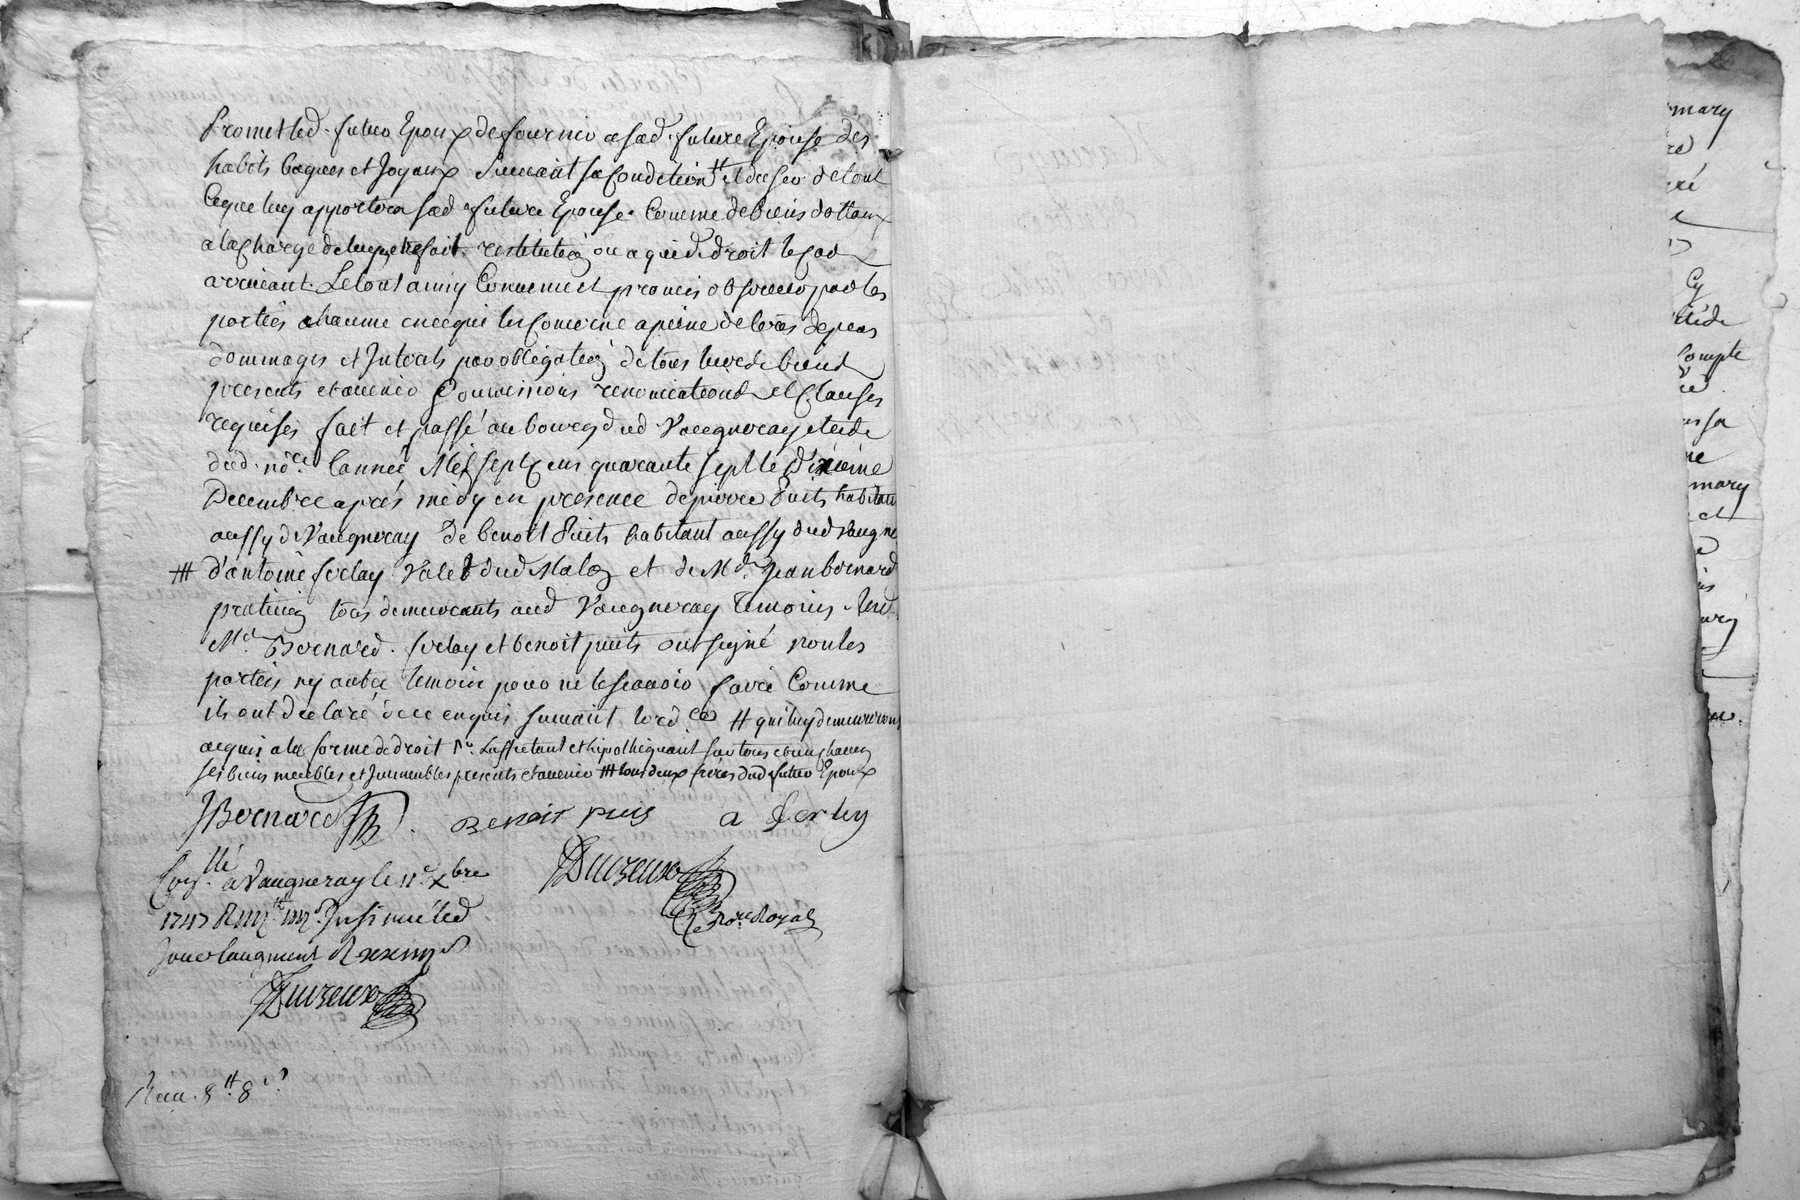 Promet led. futeur Epoux de fournir a sad. future Epouse des
habits bagues et Joyaux suivant sa Condition # et du seu de tout
Ce que luy apportera sad future Epouse. Comme de biens dottaux
a la Charge de luy en faire restitution ou a qui de droit le Cas
arriveant. Le tout ainsy Convenu et promis observer par les
parties chacune en ce qui les Concerne a peine de tous depens
dommages et Interets par obligation de tous leurs biens
presents et avenir Soumissions renonciations et Clauses
requises fait et passé au bourg dud. Vaugneray etude
dud. nore. l'année Mil sept Cens quarante sept le dixieme
Decembre aprés midy en presence de pierre Puits habitant
aussy de Vaugneray de benoit Puits habitant aussy dud Vaugne
# d'antoine ferlay Valet dud et de Md. Jean bernard
praticien tous demeurants aud Vaugneray temoins. led
Md. Bernard. ferlay et benoit puits ont signé non les
parties ny autre temoin pour ne le scavoir faire Comme
ils ont declaré de ce enquis suivant lord.ces # qui luy demeureront
acquis a la forme de droit L'affectant et hipothequant sur tous et un chacun
ses biens meubles et Immeubles presents et avenir # tous deux freres dud. futeur Epoux
JBernard benoit puis a ferley
Conllé a Vaugneray le 11e xbre Duvreux
1747 Insinué led Nore. Royal
Jour l'augment
Duvreux
8# 8s
mary
Cy
Compte
mary
et